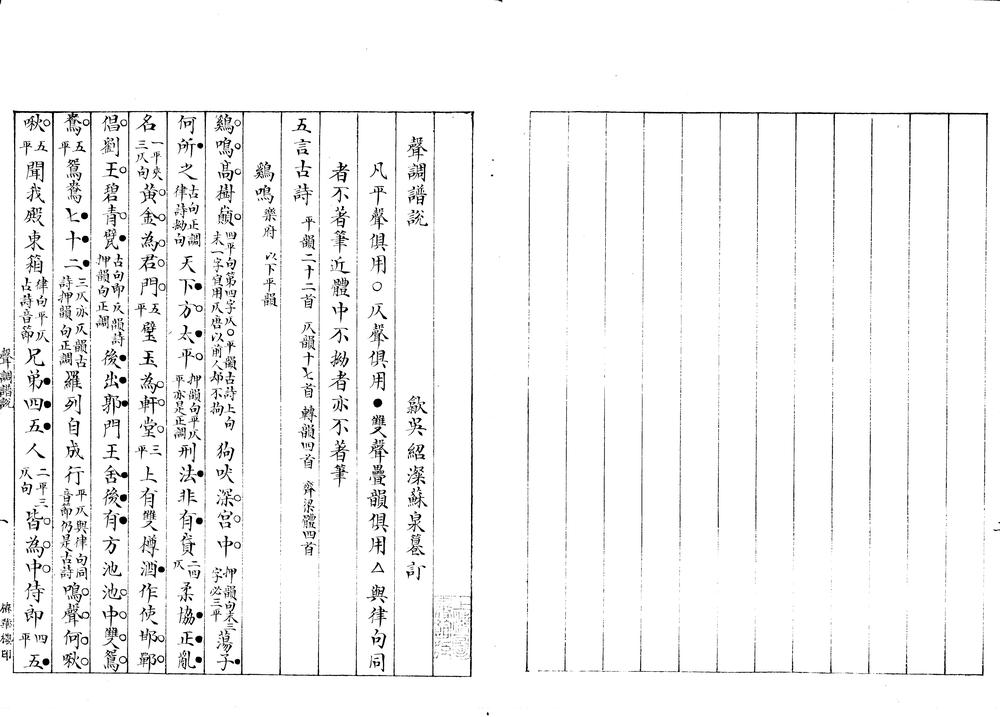 聲調譜説
歙吳紹澯蘇泉纂訂
凡平聲俱用○仄聲俱用●雙聲疊韻俱用△與律句同
者不著筆近體中不拗者亦不著筆
五言古詩 平韻二十二首 仄韻十七首 轉韻四首 齊梁體四首
鷄鳴 樂府 以下平韻
鷄○鳴○高○樹巔○四平句第四字仄○平韻古詩上句末一字宜用仄唐以前人却不拘 狗吠深○宫○中○押韻句末三字必三平 蕩子●
何所●之古句正調律詩拗句 天下●方○太●平○押韻句平仄平亦是正調 刑法●非有●貸二四仄 柔協●正●亂●
名一平夾三仄句 黄○金○為○君○門○五平 璧玉為○軒○堂○三平 上有雙樽酒●作使邯○鄲○
倡○劉王○碧青○甓●古句即仄韻詩押韻句正調 後●出●郭●門王舍●後●有●方池池○中○雙○鴛○
鴦○五平 鴛鴦七●十●二●三仄亦仄韻古詩押韻句正調 羅列自成行平仄與律句同音節仍是古詩 鳴○聲○何○啾○
啾○五平 聞我殿東箱律句平仄古詩音節 兄弟●四●五●人二平三仄句 皆○為○中○侍郎○四平 五●
聲調譜説
一